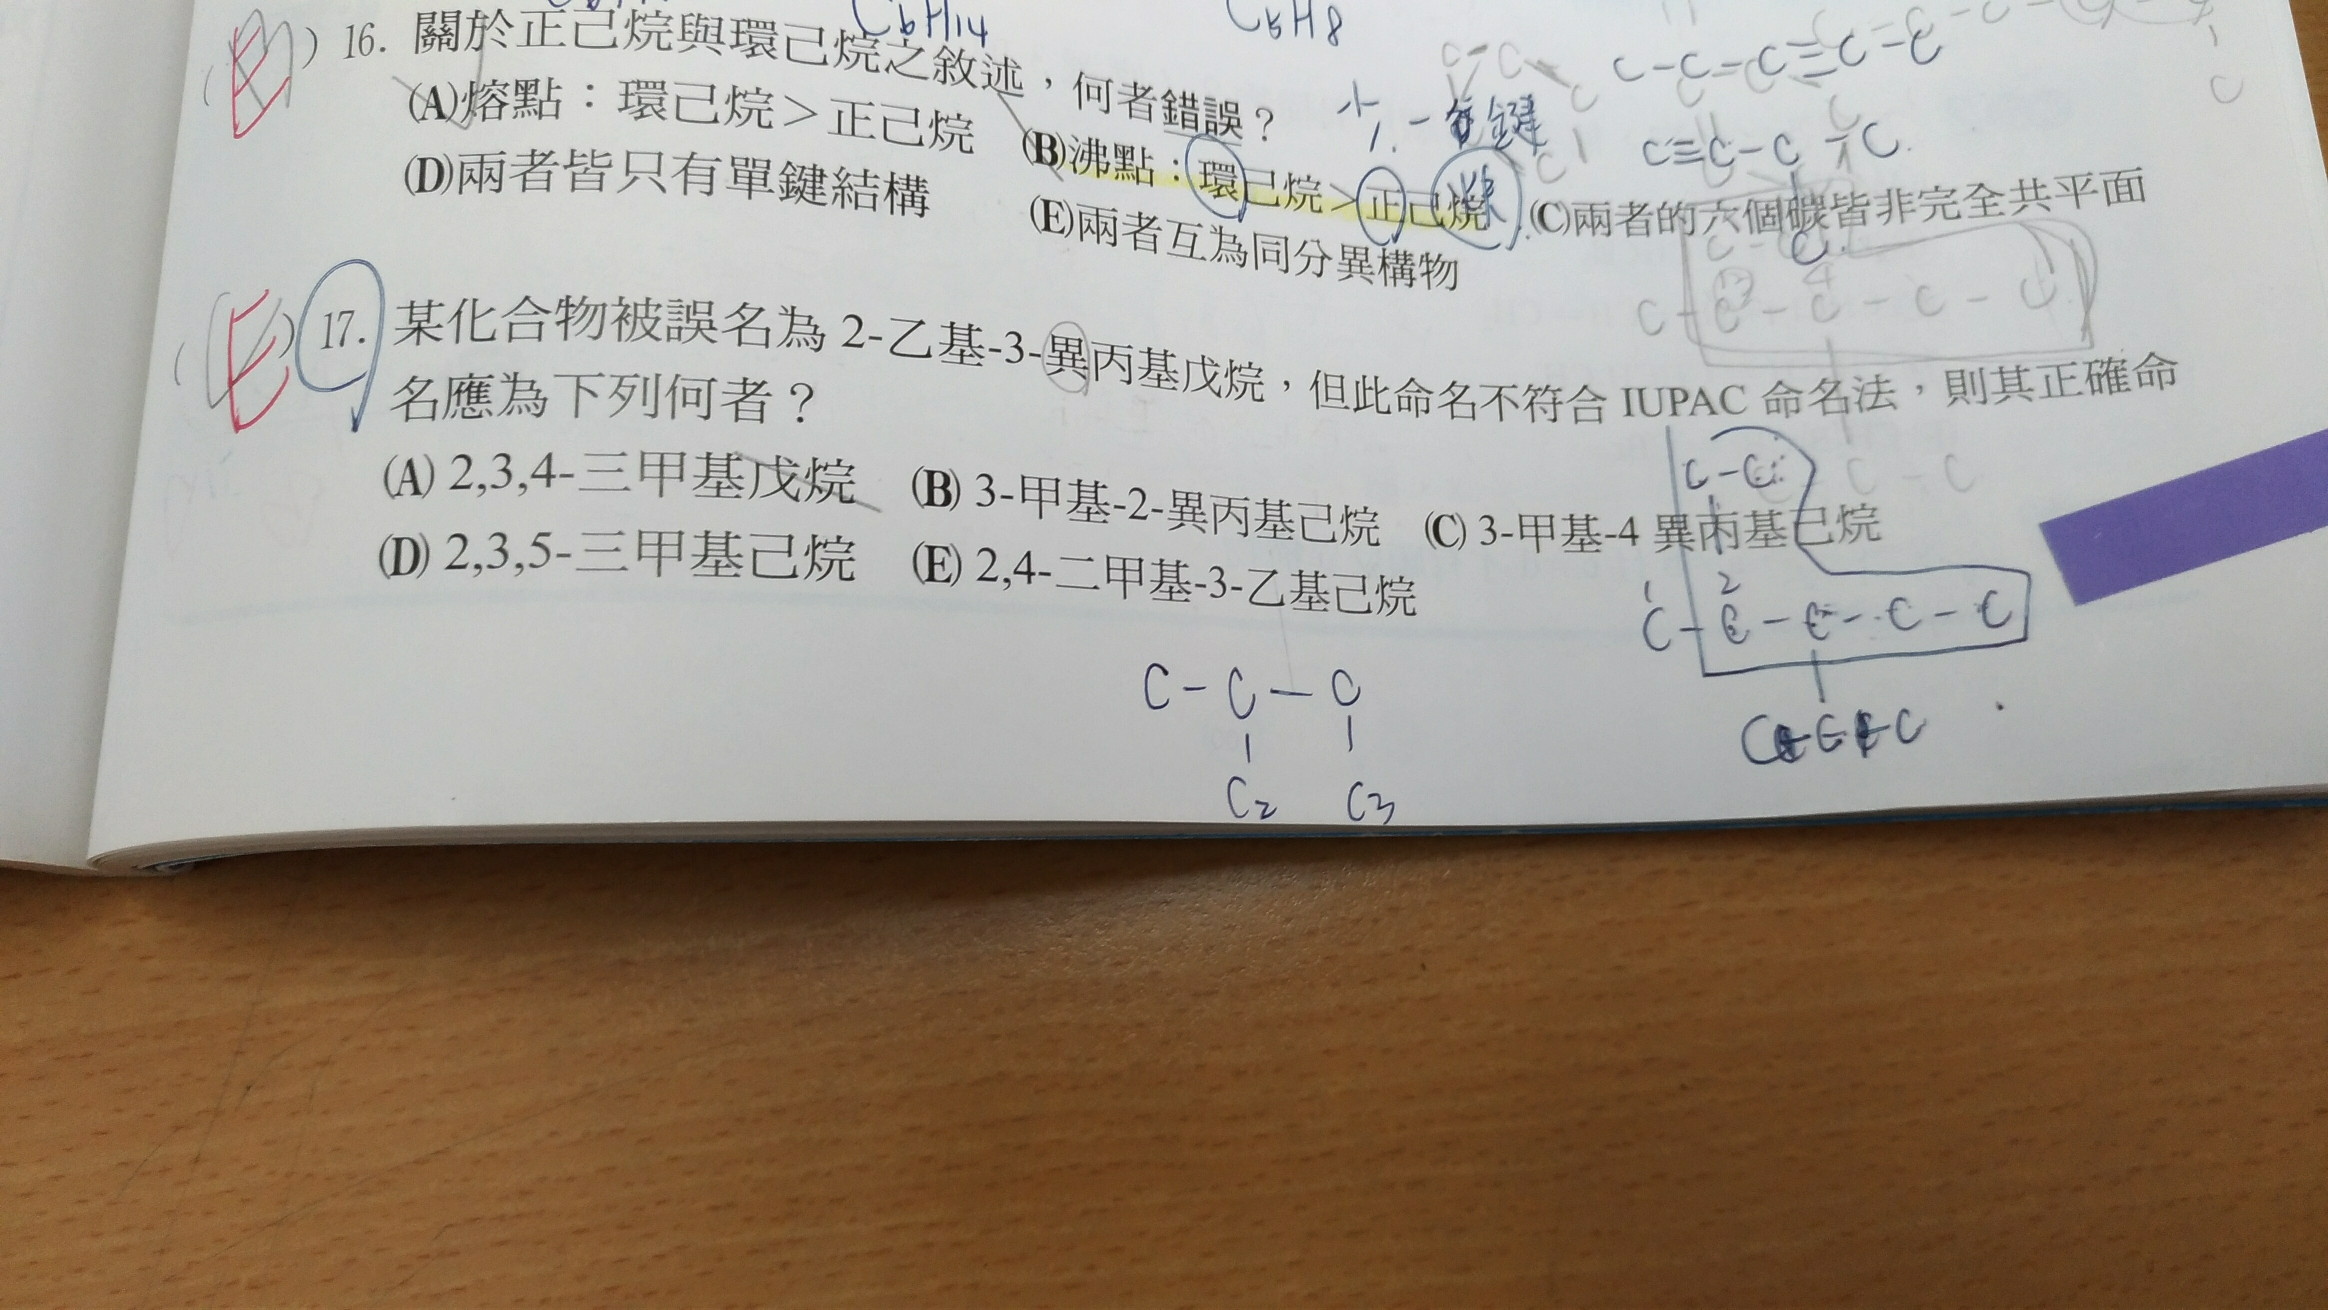 C6H14 C5H8
( E ) 16. 關於正己烷與環己烷之敘述，何者錯誤？
(A)熔點：環己烷＞正己烷 (B)沸點：環己烷＞正己烷 (C)兩者的六個碳皆非完全共平面
(D)兩者皆只有單鍵結構 (E)兩者互為同分異構物
( E ) 17. 某化合物被誤名為 2-乙基-3-異丙基戊烷，但此命名不符合 IUPAC 命名法，則其正確命
名應為下列何者？
(A) 2,3,4-三甲基戊烷 (B) 3-甲基-2-異丙基己烷 (C) 3-甲基-4 異丙基己烷
(D) 2,3,5-三甲基己烷 (E) 2,4-二甲基-3-乙基己烷
C-C-C≡C-C
C≡C-C-C
C-C
1 2
C-C-C-C-C
C-C-C
C2 C3